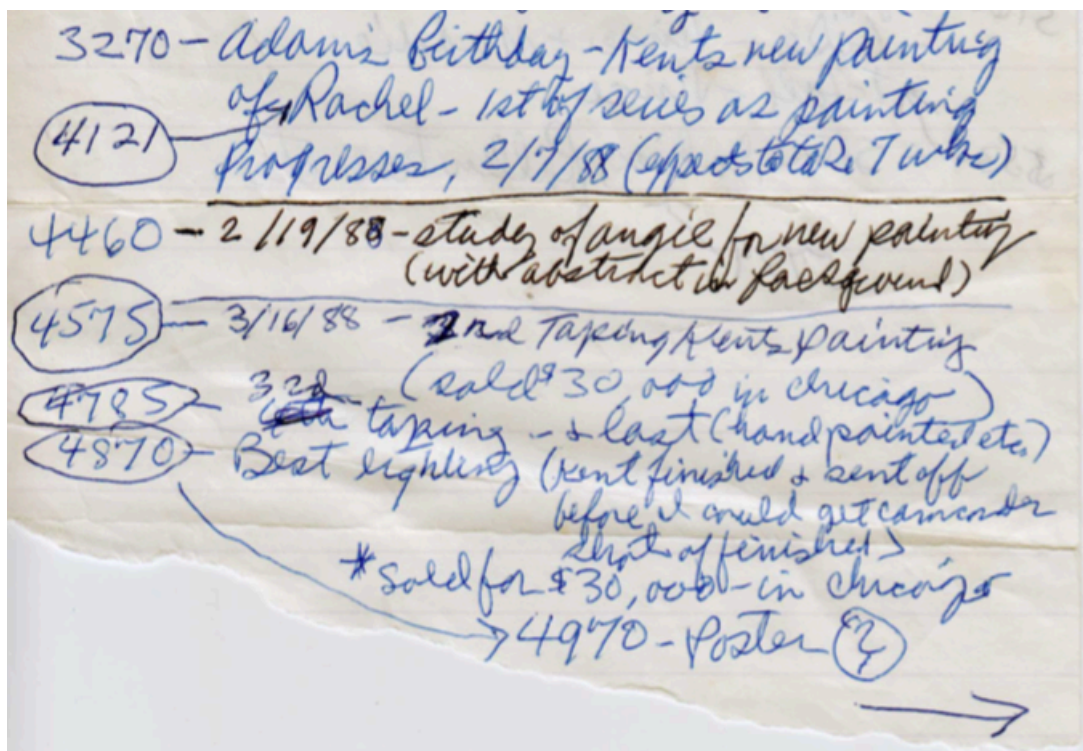 3270 - Adam's Birthday - Kent's new painting
of Rachel - 1st of series as painting
4121
progresses, 2/7/88 (expects to take 7 wks)
4460 - 2/19/88 - study of angie for new painting
(with abstract in background)
4575 - 3/16/88 - 2nd Taping Kents painting
(sold $30,000 in chicago)
4785 - 3rd taping - & last (hand painted etc.)
4870 - Best lighting (Kent finished & sent off
before I could get camcorder
shot of finished)
*sold for $30,000 - in chicago
4970 - Poster ?